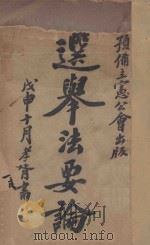 預備立憲公會出版
選舉法要論
戊申十月孝胥書